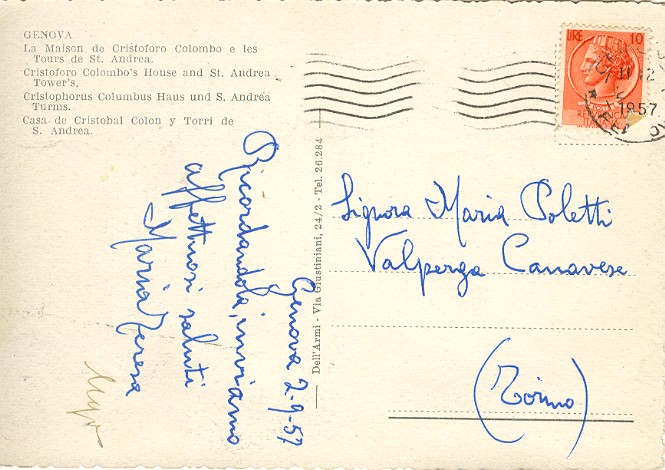 GENOVA
La Maison de Cristoforo Colombo e les
Tours de St. Andrea.
Cristoforo Colombo's House and St. Andrea
Tower's.
Cristophorus Columbus Haus und S. Andrea
Turms.
Casa de Cristobal Colon y Torri de
S. Andrea.
LIRE 10
1957
Dell'Armi - Via Giustiniani, 24/2 - Tel. 26.284
Genova 2-9-57
Ricordandola, inviamo
affettuosi saluti
Maria Teresa
Signora Maria Poletti
Valperga Canavese
(Torino)